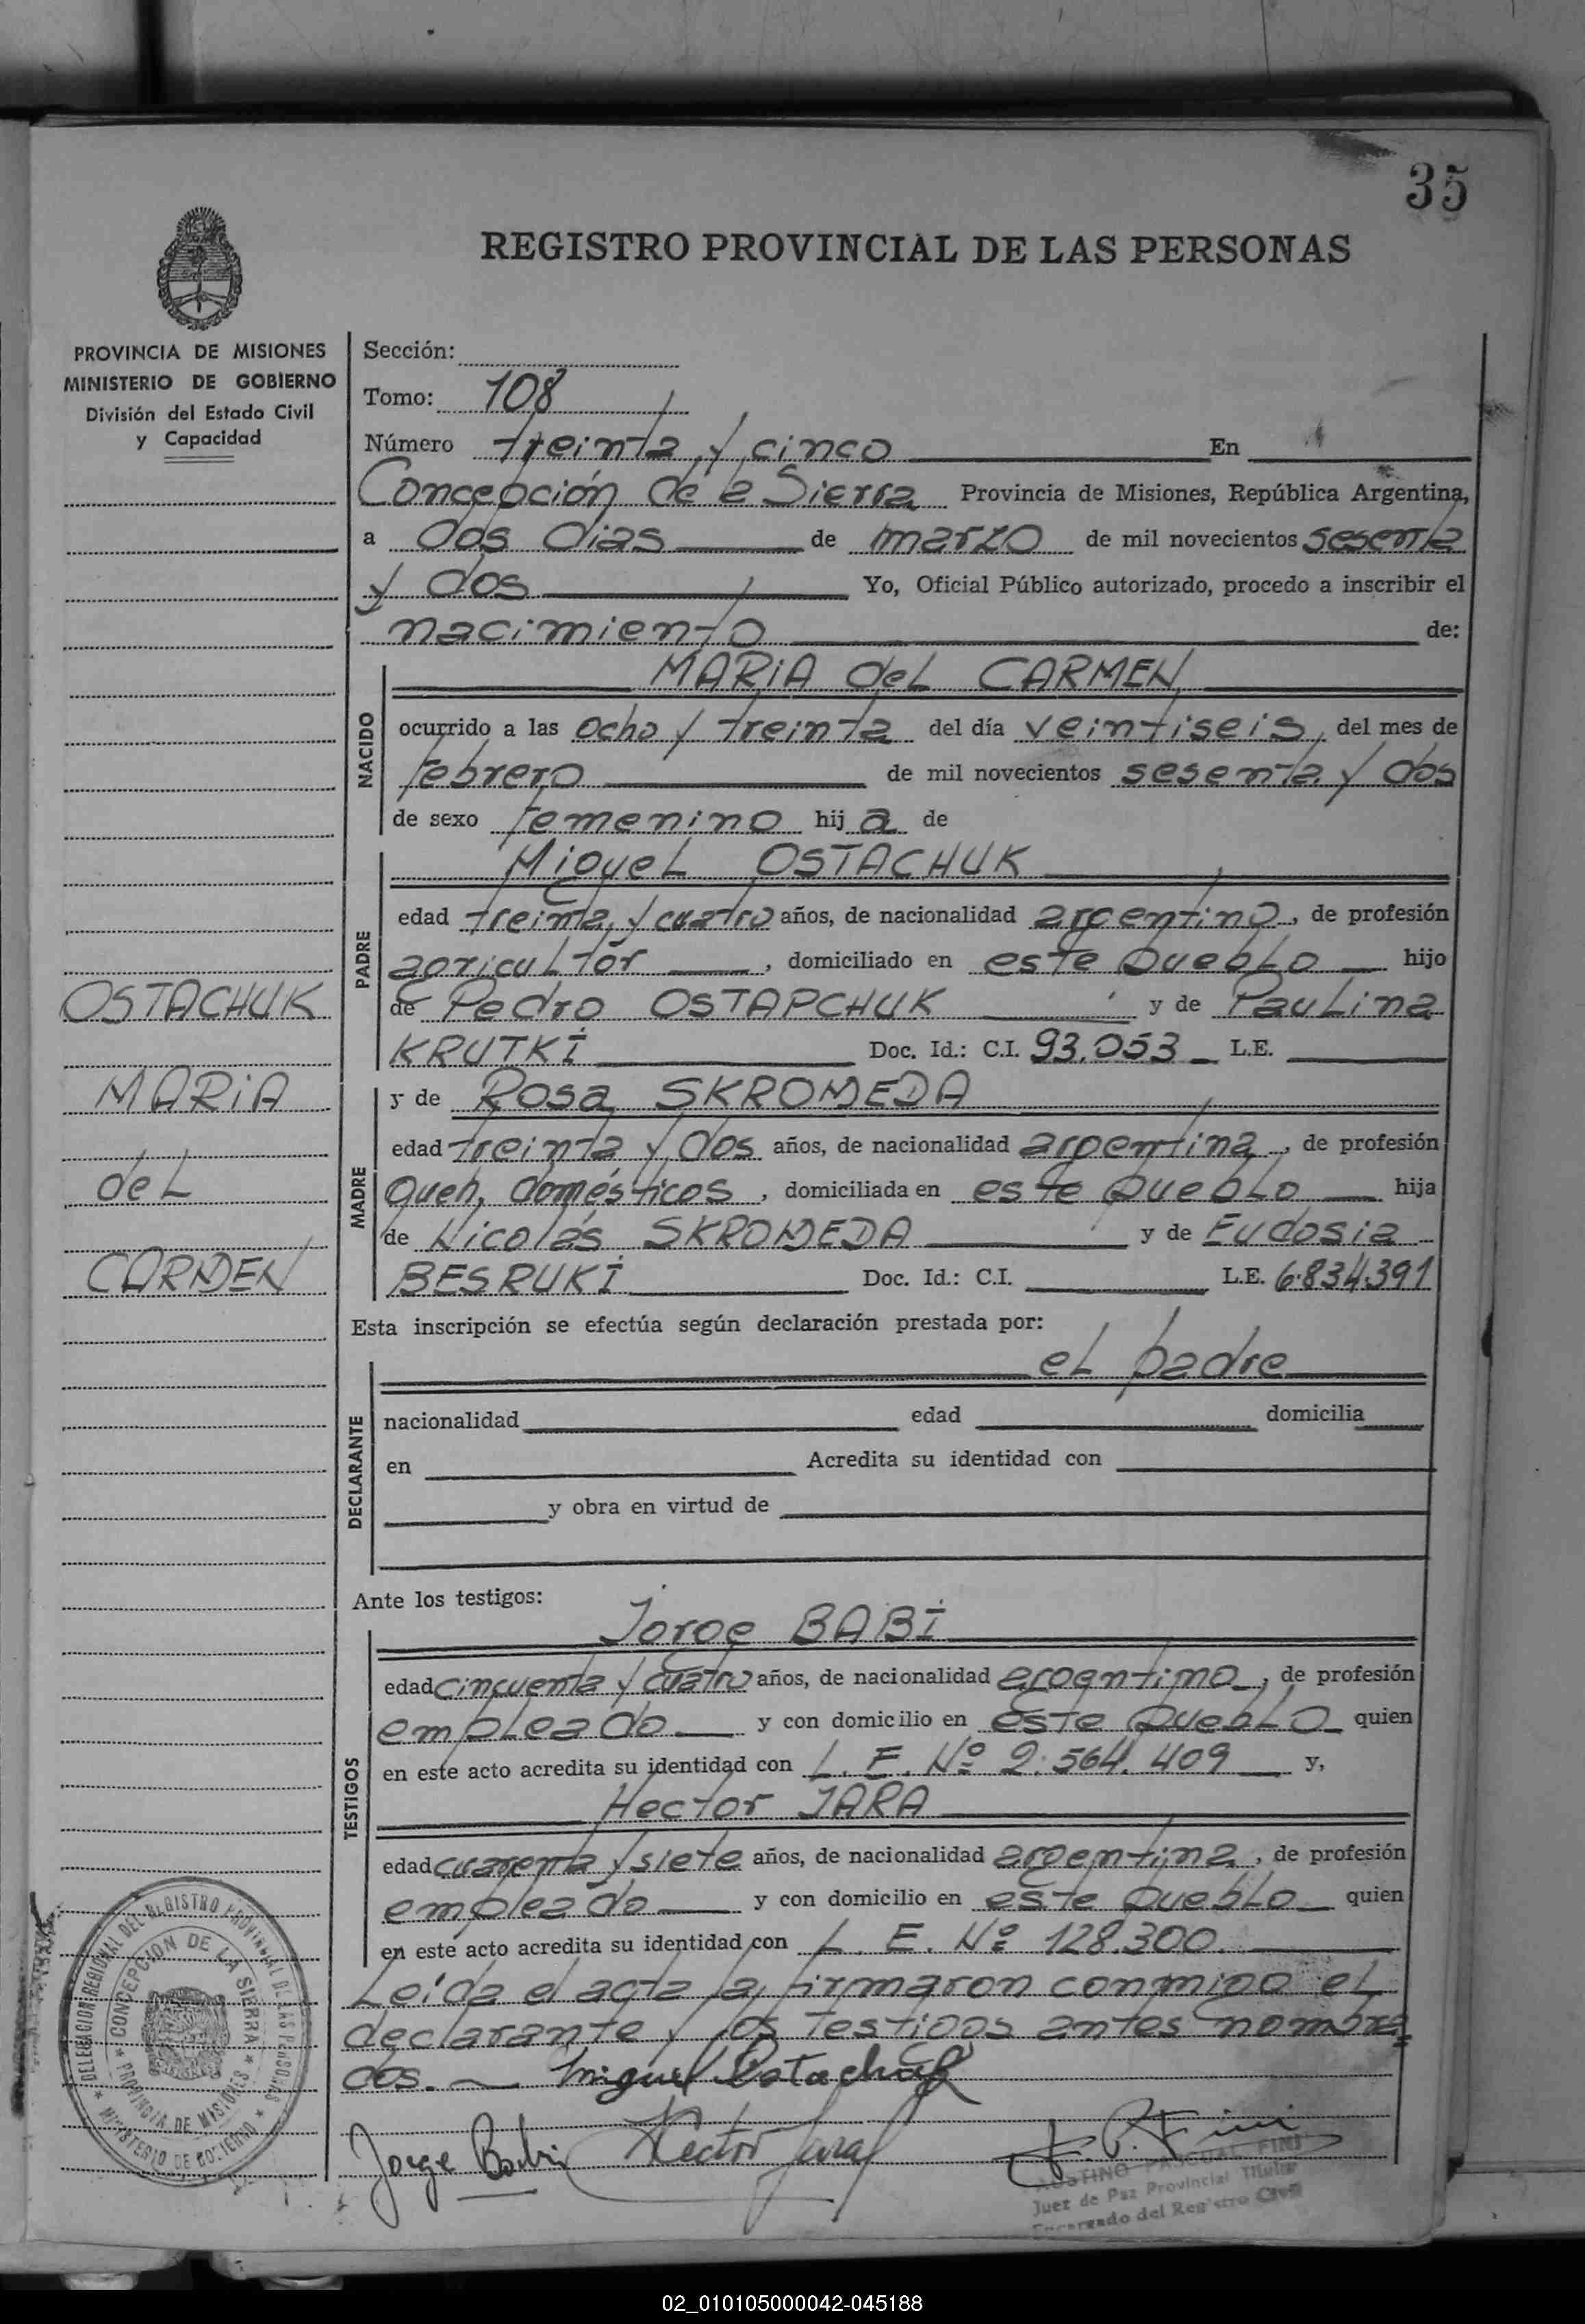 35
REGISTRO PROVINCIAL DE LAS PERSONAS
PROVINCIA DE MISIONES
MINISTERIO DE GOBIERNO
División del Estado Civil
y Capacidad
OSTACHUK
MARIA
deL
CARMEN
Sección:
Tomo: 108
Número treinta y cinco En
Concepción de la Sierra Provincia de Misiones, República Argentina,
a dos dias de marzo de mil novecientos sesenta
y dos Yo, Oficial Público autorizado, procedo a inscribir el
nacimiento de:
NACIDO
MARIA deL CARMEN
ocurrido a las ocho y treinta del día veintiseis, del mes de
febrero de mil novecientos sesenta y dos
de sexo femenino hij a de
PADRE
MigueL OSTACHUK
edad treinta y cuatro años, de nacionalidad argentino, de profesión
agricultor, domiciliado en este puebLo hijo
de Pedro OSTAPCHUK y de PauLina
KRUTKI Doc. Id.: C.I. 93.053 L.E.
MADRE
y de Rosa SKROMEDA
edad treinta y dos años, de nacionalidad argentina, de profesión
queh, domésticos, domiciliada en este puebLo hija
de Nicolás SKROMEDA y de Eudosia
BESRUKI Doc. Id.: C.I. L.E. 6.834.391
Esta inscripción se efectúa según declaración prestada por:
DECLARANTE
eL padre
nacionalidad edad domicilia
en Acredita su identidad con
y obra en virtud de
Ante los testigos:
TESTIGOS
Jorge BABI
edad cincuenta y cuatro años, de nacionalidad argentino, de profesión
empLeado y con domicilio en este puebLo quien
en este acto acredita su identidad con L. E. Nº 2.564.409 y,
Hector JARA
edad cuarenta y siete años, de nacionalidad argentina, de profesión
empleado y con domicilio en este puebLo quien
en este acto acredita su identidad con L. E. Nº 128.300.
Leída el acta la firmaron conmigo eL
declarante y los testigos antes nombra
dos. Miguel Ostachuk
Jorge Babi Hector Jara
PASCUAL FINI
Juez de Paz Provincial Titular
Encargado del Registro Civil
DELEGACION REGIONAL DEL REGISTRO PROVINCIAL DE LAS PERSONAS
MINISTERIO DE GOBIERNO
CONCEPCION DE LA SIERRA
PROVINCIA DE MISIONES
02_010105000042-045188